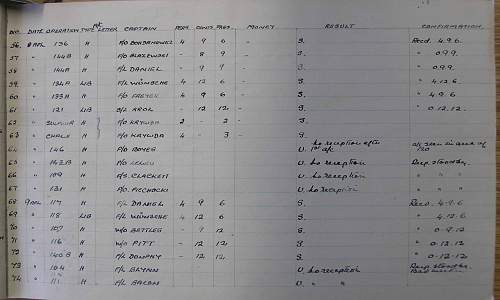 NO. DATE OPERATION TYPE A/C LETTER CAPTAIN PERS. CONTS PKGS. MONEY RESULT CONFIRMATION
56 8 APL 136 H F/O BOHDANOWICZ 4 9 6 - S. Recd. 4.9.6.
57 " 144B H F/O BLAZEWSKI - 8 9 - S. " 0.9.9.
58 " 144A H F/L DANIEL - 9 9 - S. " 0.9.9.
59 " LIB F/L WÜNSCHE 4 12 6 - S. " 4.12.6
60 " H F/O 4 9 6 - S. " 4.9.6
61 " 121 LIB S/L KROL - 12 12 - S. " 0.12.12.
62 " H F/O KRYWDA 2 - 2 - S.
63 " CHALK H F/O KRYWDA 4 - 3 - S.
64 " 146 H F/O U. No reception after 1st a/c a/c seen in area of
65 " 142B H F/O U. No reception Recep. standby.
66 " 109 H F/S. CLACKETT U. No reception " "
67 " 131 H F/O PICCHOCKI U. No reception " "
68 9 APL 117 H F/L DANIEL 4 9 6 S. Recd. 4.9.6
69 " 118 LIB F/L WÜNSCHE 4 12 6 S. " 4.12.6
70 " 107 H W/O BETTLES - 9 12 S. " 0.9.12
71 " 116 H W/O PITT - 12 12. S. " 0.12.12
72 " H F/L DUNPHY - 12 12. S. " 0.12.12
73 " 104 H F/L U. No reception Recep. standby.
74 " 111 H F/L U. " "